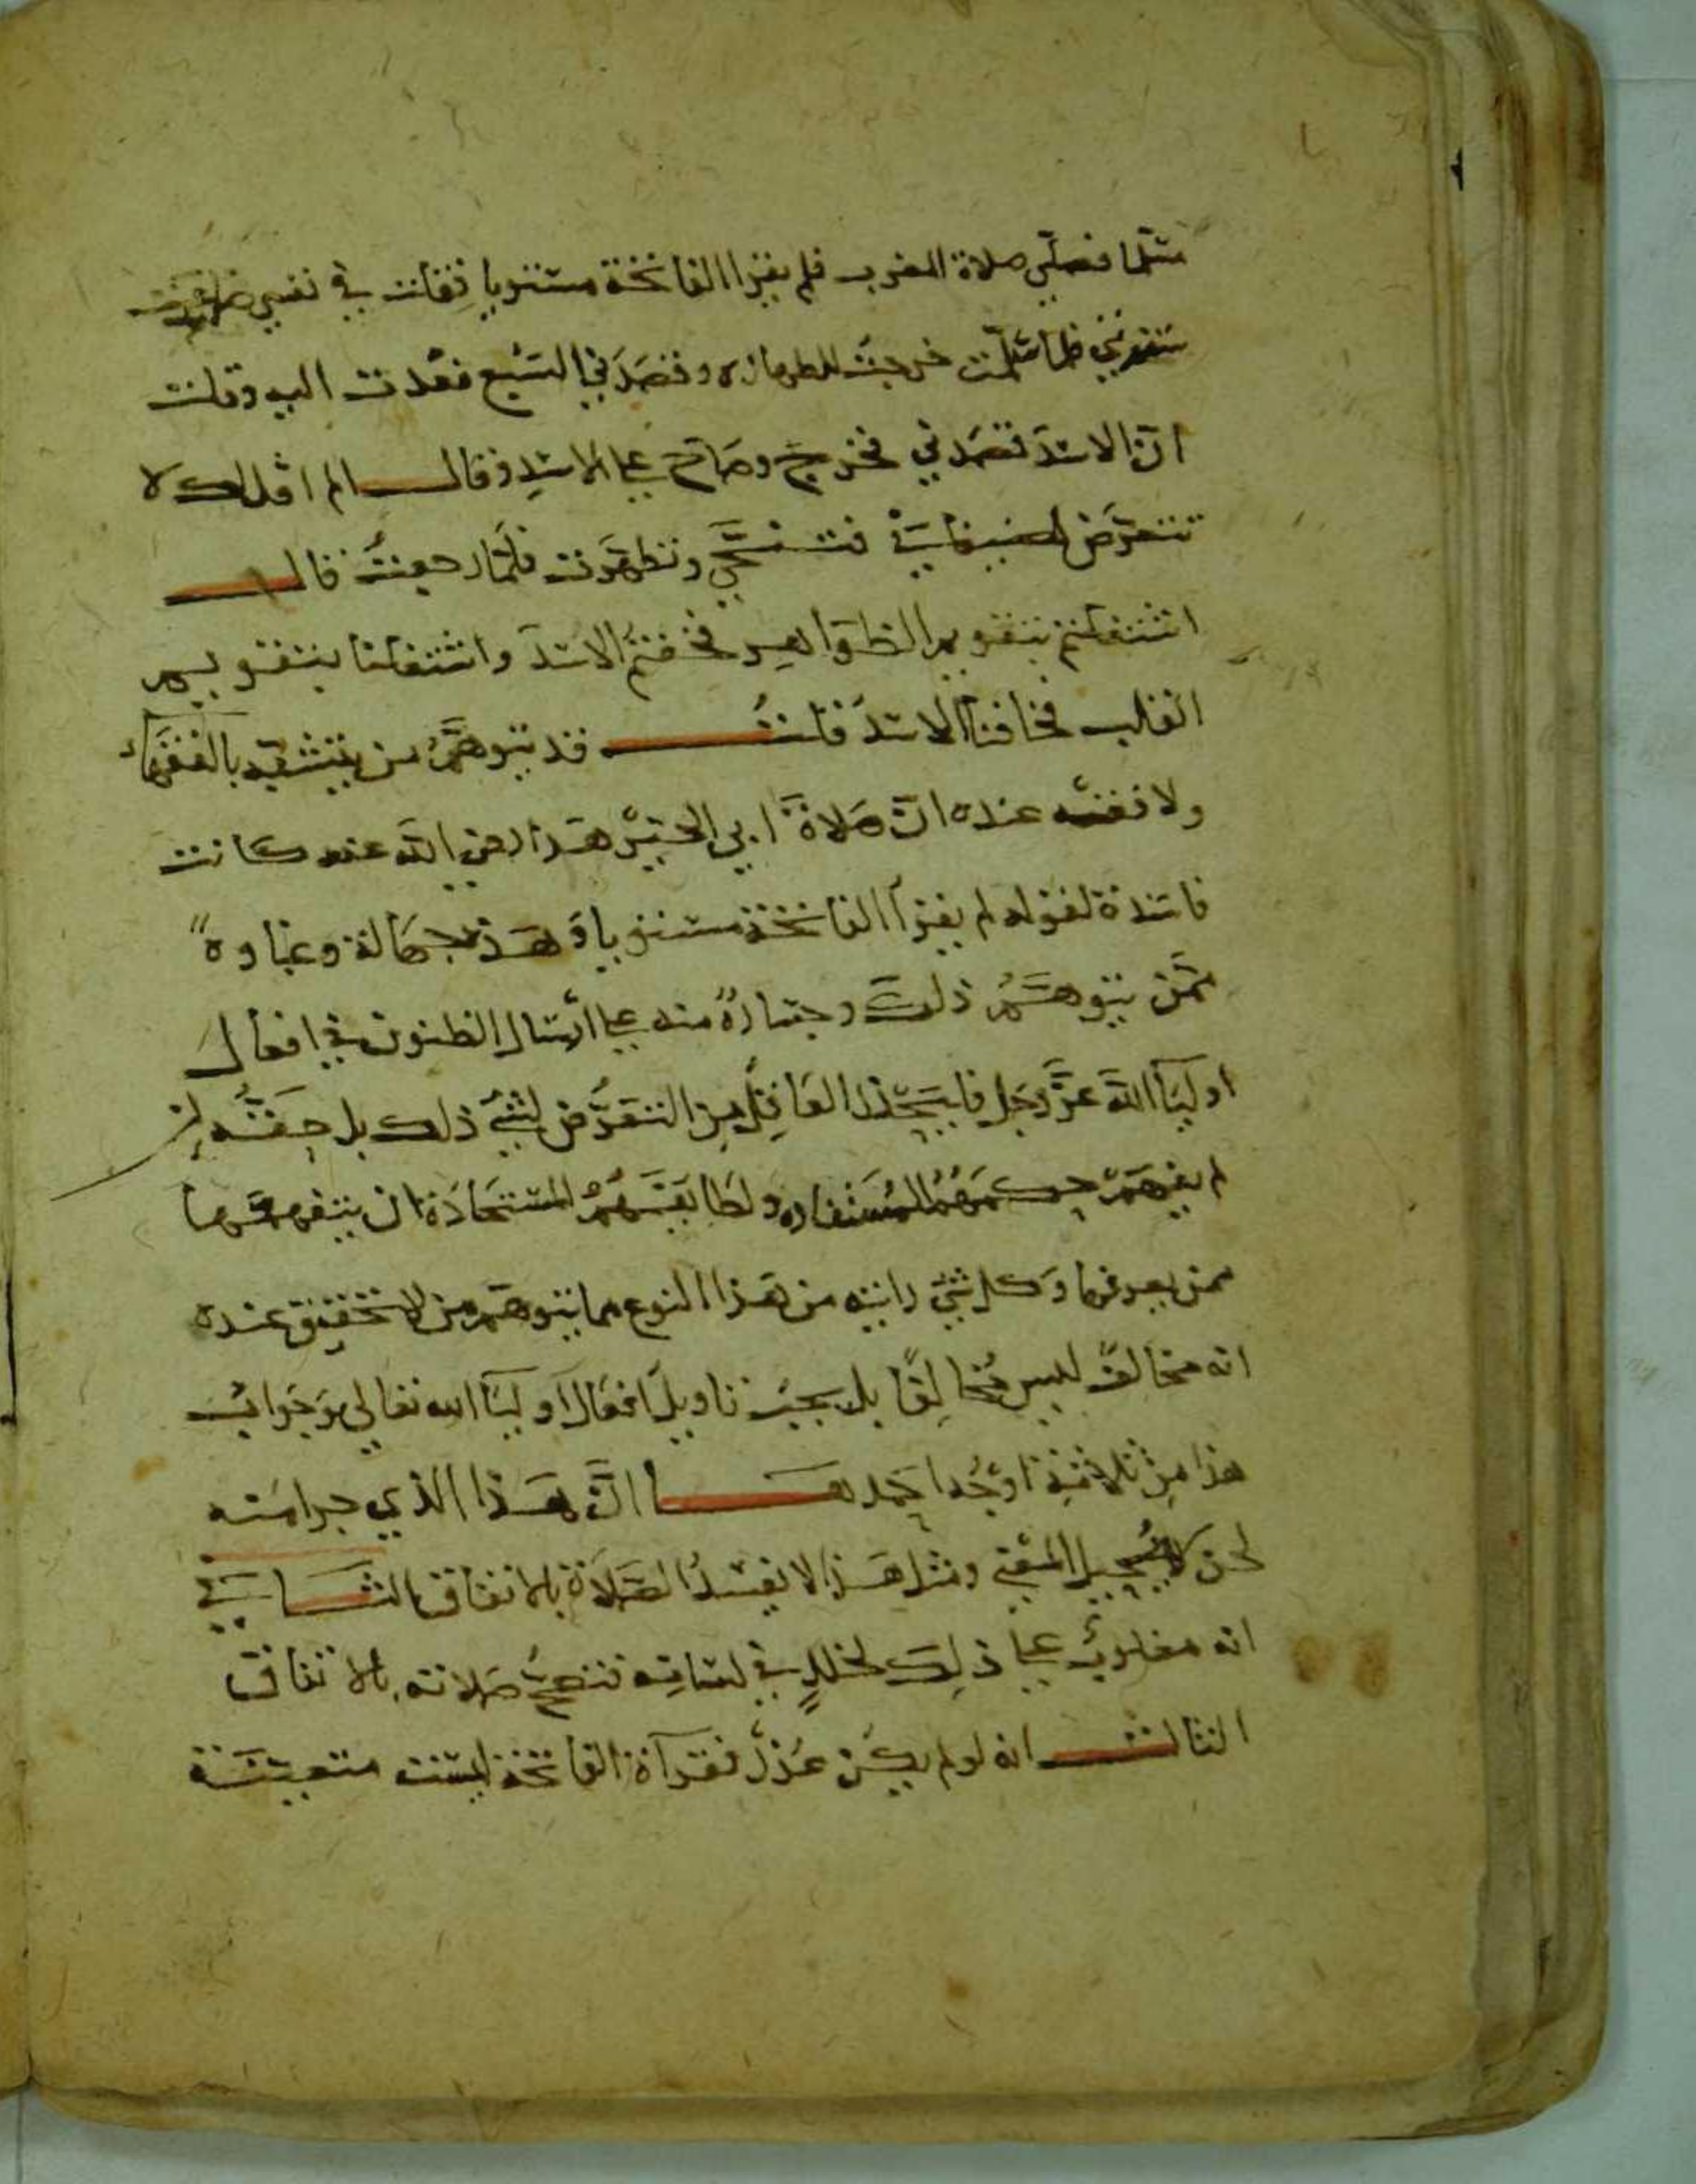 مسلما فصلى صلاة المغرب فلم يقرا الفاتحة مستويا فقلت في نفسي ضاعت
سفرتي فلما سلمت خرجت للطهارة فقصدني السبع فعدت اليه وقلت
ان الاسد قصدني فخرج وصاح على الاسد وقال الم اقل لك لا
تتعرض لضيفاني فتنحى وتطهرت فلما رجعت قال
اشتغلتم بتقويم الظواهر فخفتم الاسد واشتغلنا بتقويم
القلب فخافنا الاسد قلت قد يتوهم من يتشبه بالفقهاء
ولا فقه عنده ان صلاة ابي الخير هذا رضي الله عنه كانت
فاسدة لقوله لم يقرا الفاتحة مستويا وهذه جهالة وغباوة
ممن يتوهم ذلك وجسارة منه على ارسال الظنون في افعال
اولياء الله عز وجل فليحذر العاقل من التعرض لشيء ذلك بل حقه اذا
لم يفهم حكمهم المستفادة ولطائفهم المستجادة ان يتفهمها
ممن يعرفها وكل شيء رايته من هذا النوع مما يتوهم من لا تحقيق عنده
انه مخالف ليس مخالفا بل يجب تاويل افعال اولياء الله تعالى وجواب
هذا من ثلاثة اوجه احدها ان هذا الذي جرا منه
لحن لا يحيل المعنى ومثل هذا لا يفسد الصلاة بالاتفاق الثاني
انه مغلوب على ذلك لخلل في لسانه فتصح صلاته بالاتفاق
الثالث انه لو لم يكن عذر فقرآة الفاتحة ليست متعينة